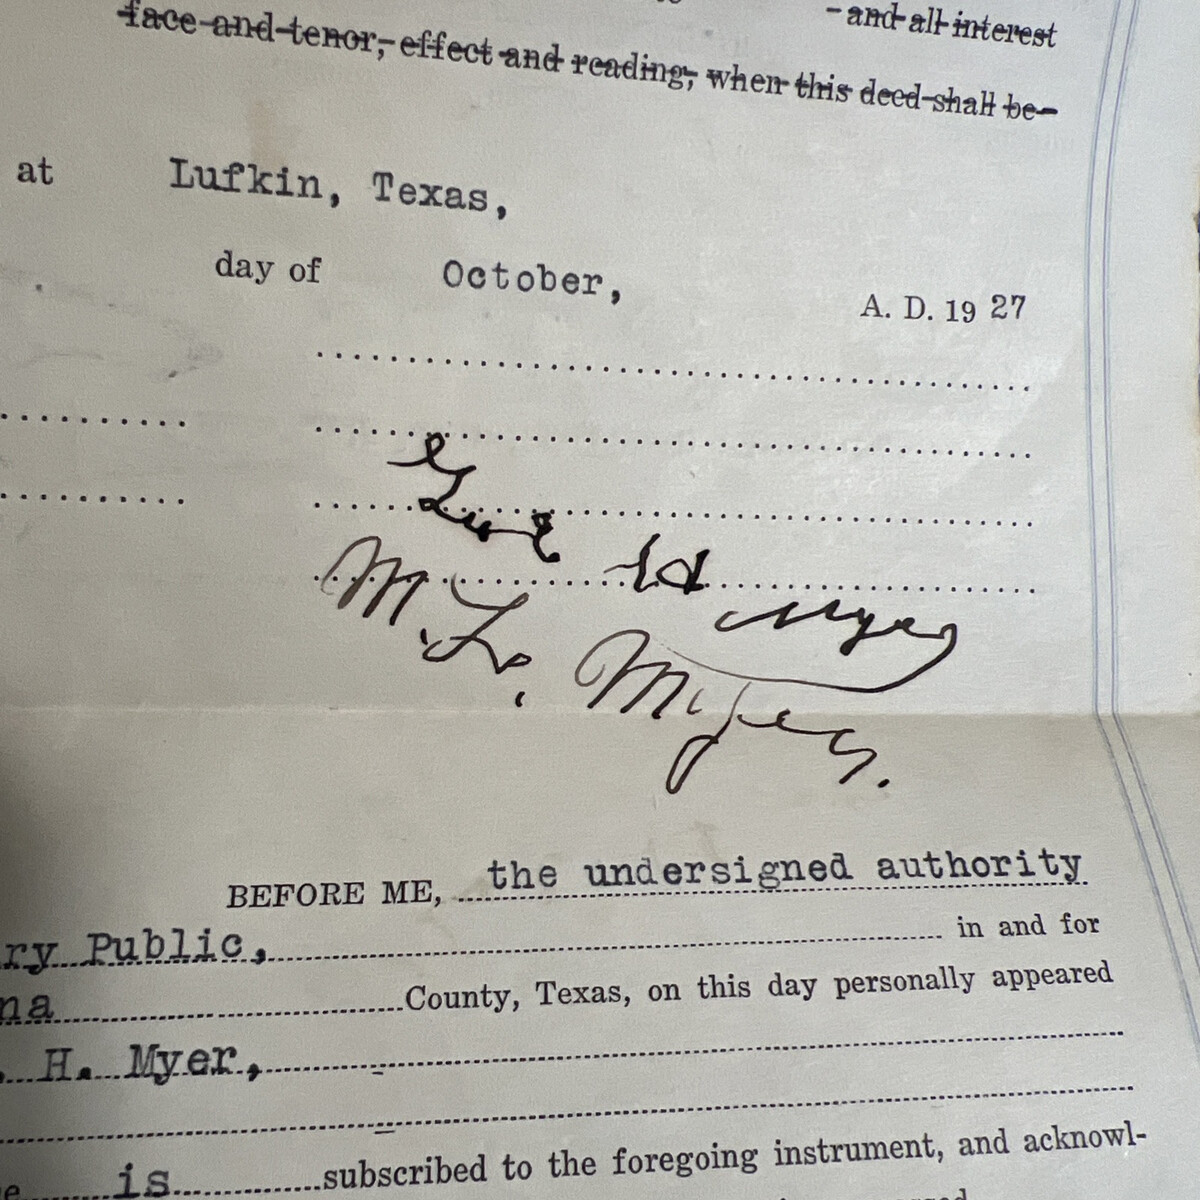 - and all interest
face and tenor, effect and reading, when this deed shall be
at Lufkin, Texas,
day of October, A. D. 19 27
H Myer
M. L. Myer.
BEFORE ME, the undersigned authority
ry Public, in and for
na County, Texas, on this day personally appeared
. H. Myer,
is subscribed to the foregoing instrument, and acknowl-